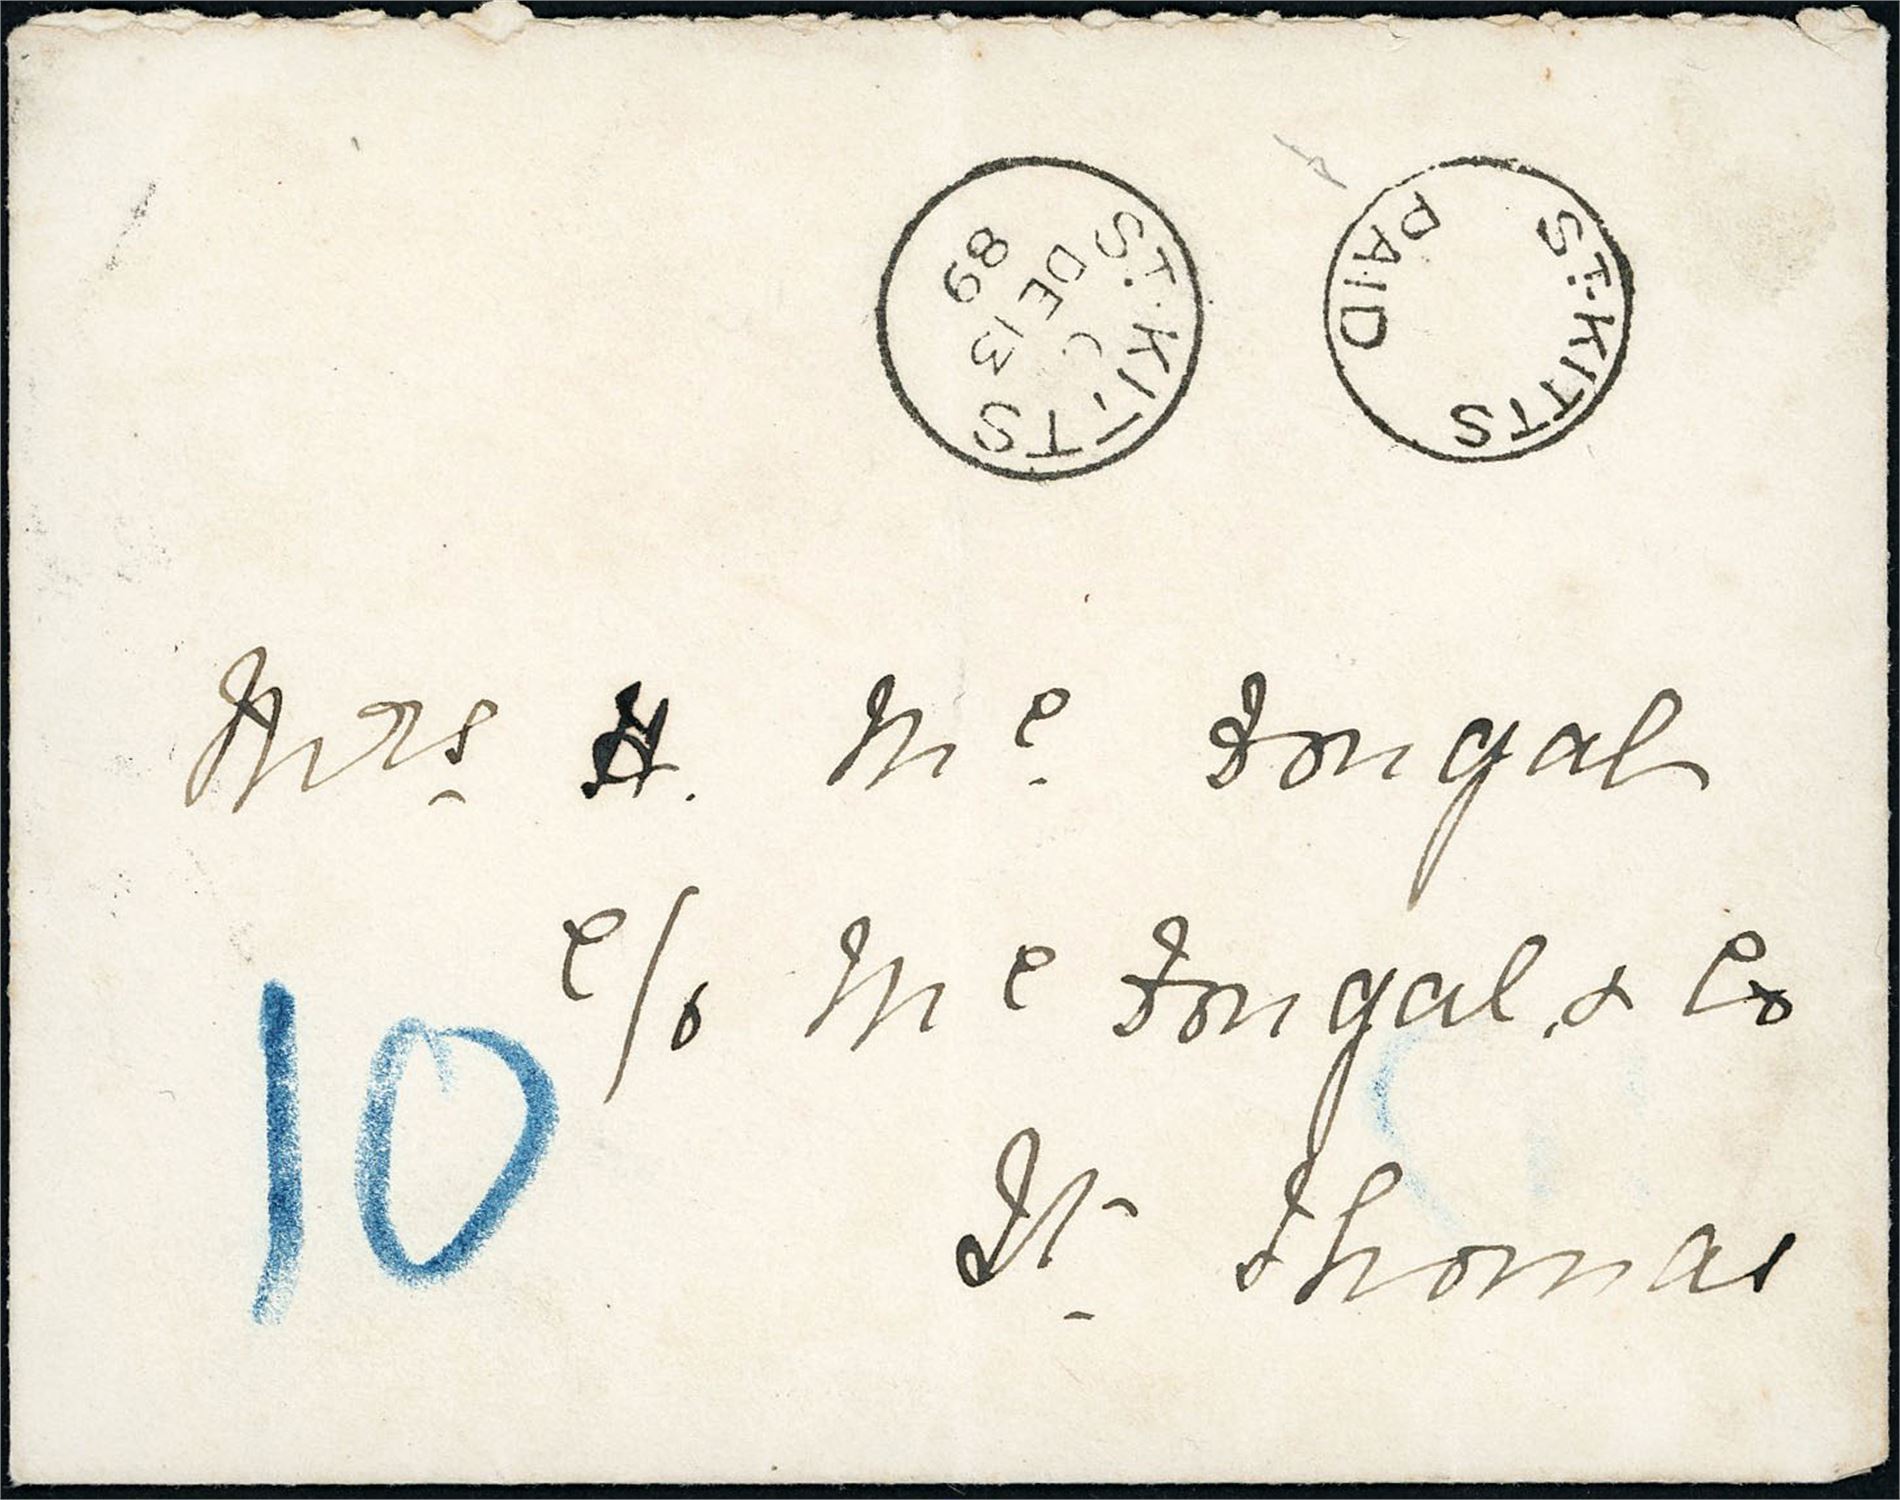 ST. KITTS
C
DE 13
89
ST. KITTS
PAID
Mrs H. Mc Dougal
c/o Mc Dougal & Co
St. Thomas
10